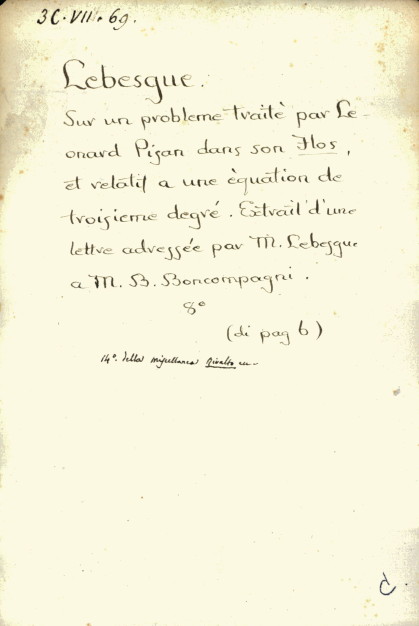 3C. VII. 69.
Lebesgue.
Sur un probleme traitè par Le-
onard Pisan dans son Flos,
et relatif a une èquation de
troisieme degré. Extrait d'une
lettre adressée par M. Lebesgue
a M. B. Boncompagni.
8°
(di pag 6)
14°. della miscellanea Rivalto
C.